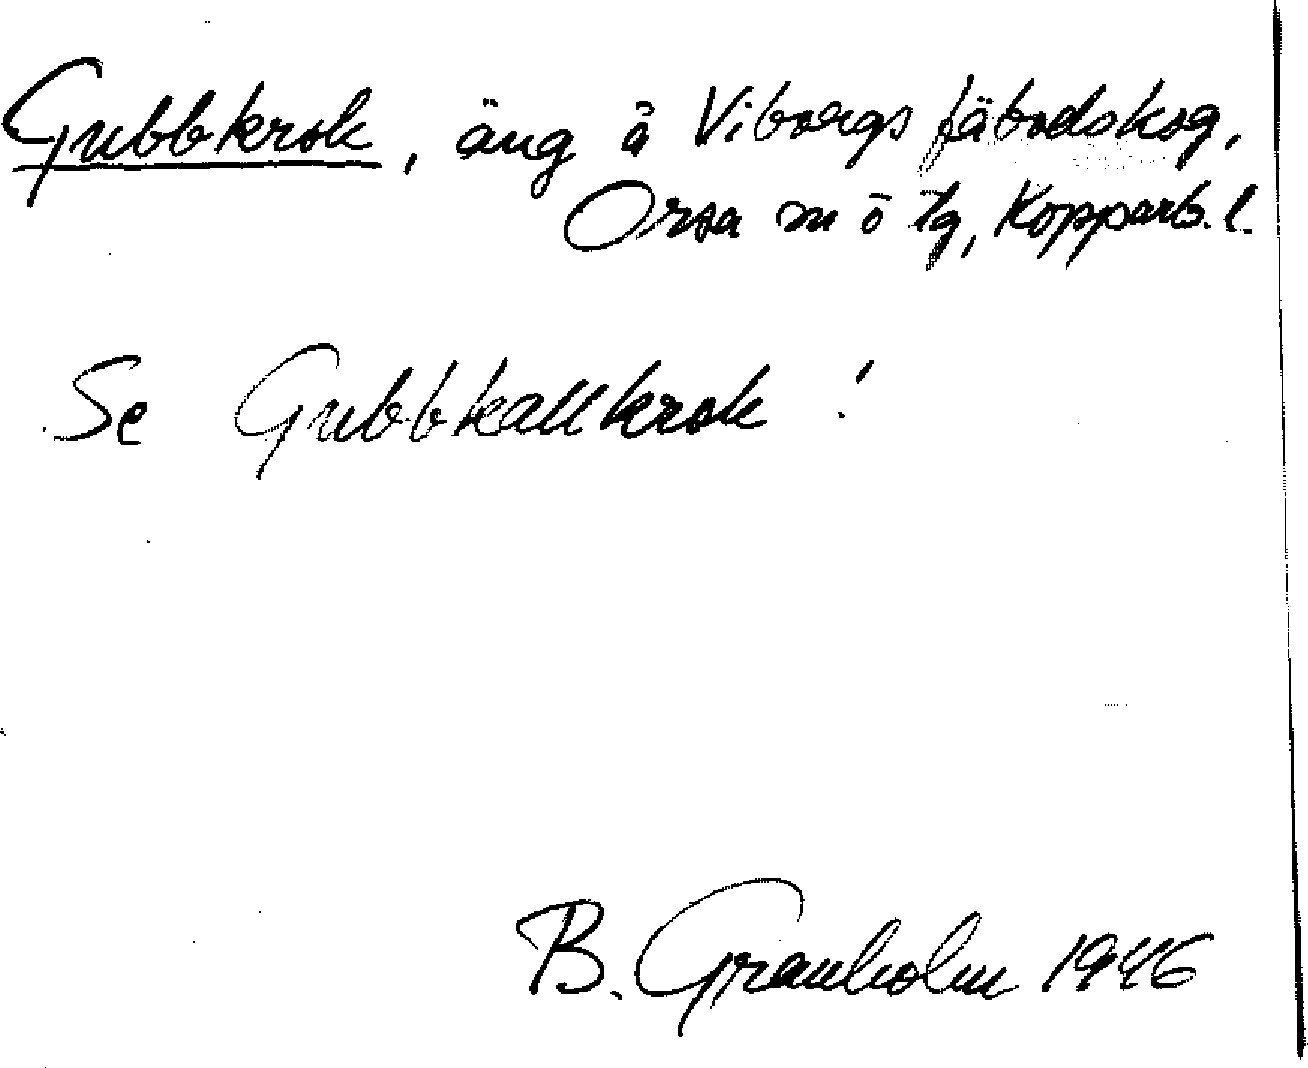 Gubbkrok, äng å Viborgs fäbodskog,
Orsa sn ö tg, Kopparb. l.
Se Gubbkallkrok!
B. Granholm 1946